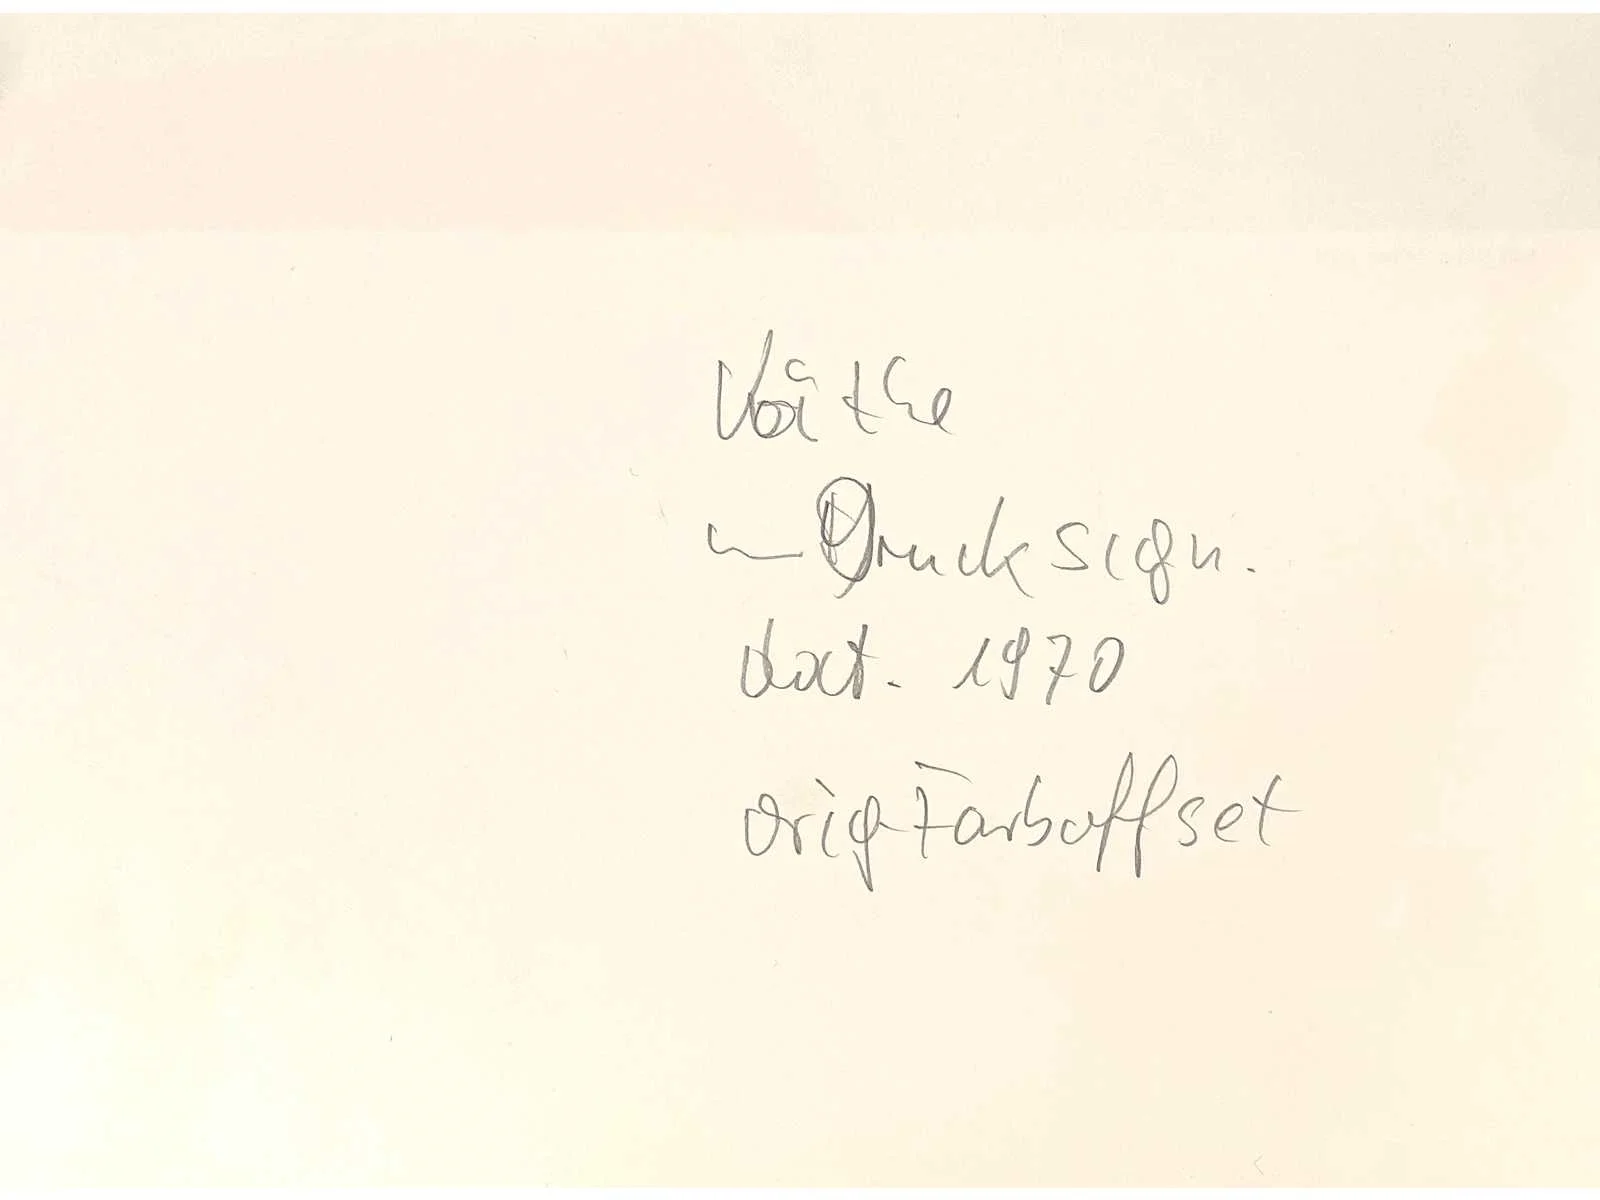 Voithe
im Druck sign.
dat. 1970
orig Farboffset